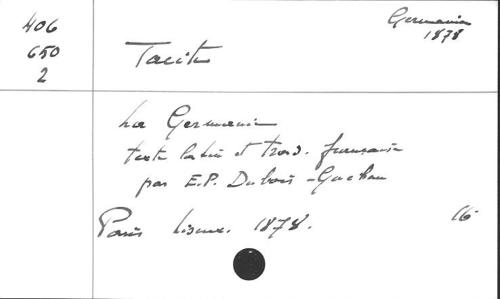 406
650
2
Germanie
1878
Tacite
La Germanie
texte latin et trad. française
par E.P. Dubois-Guchan
Paris Liseux. 1878. 16